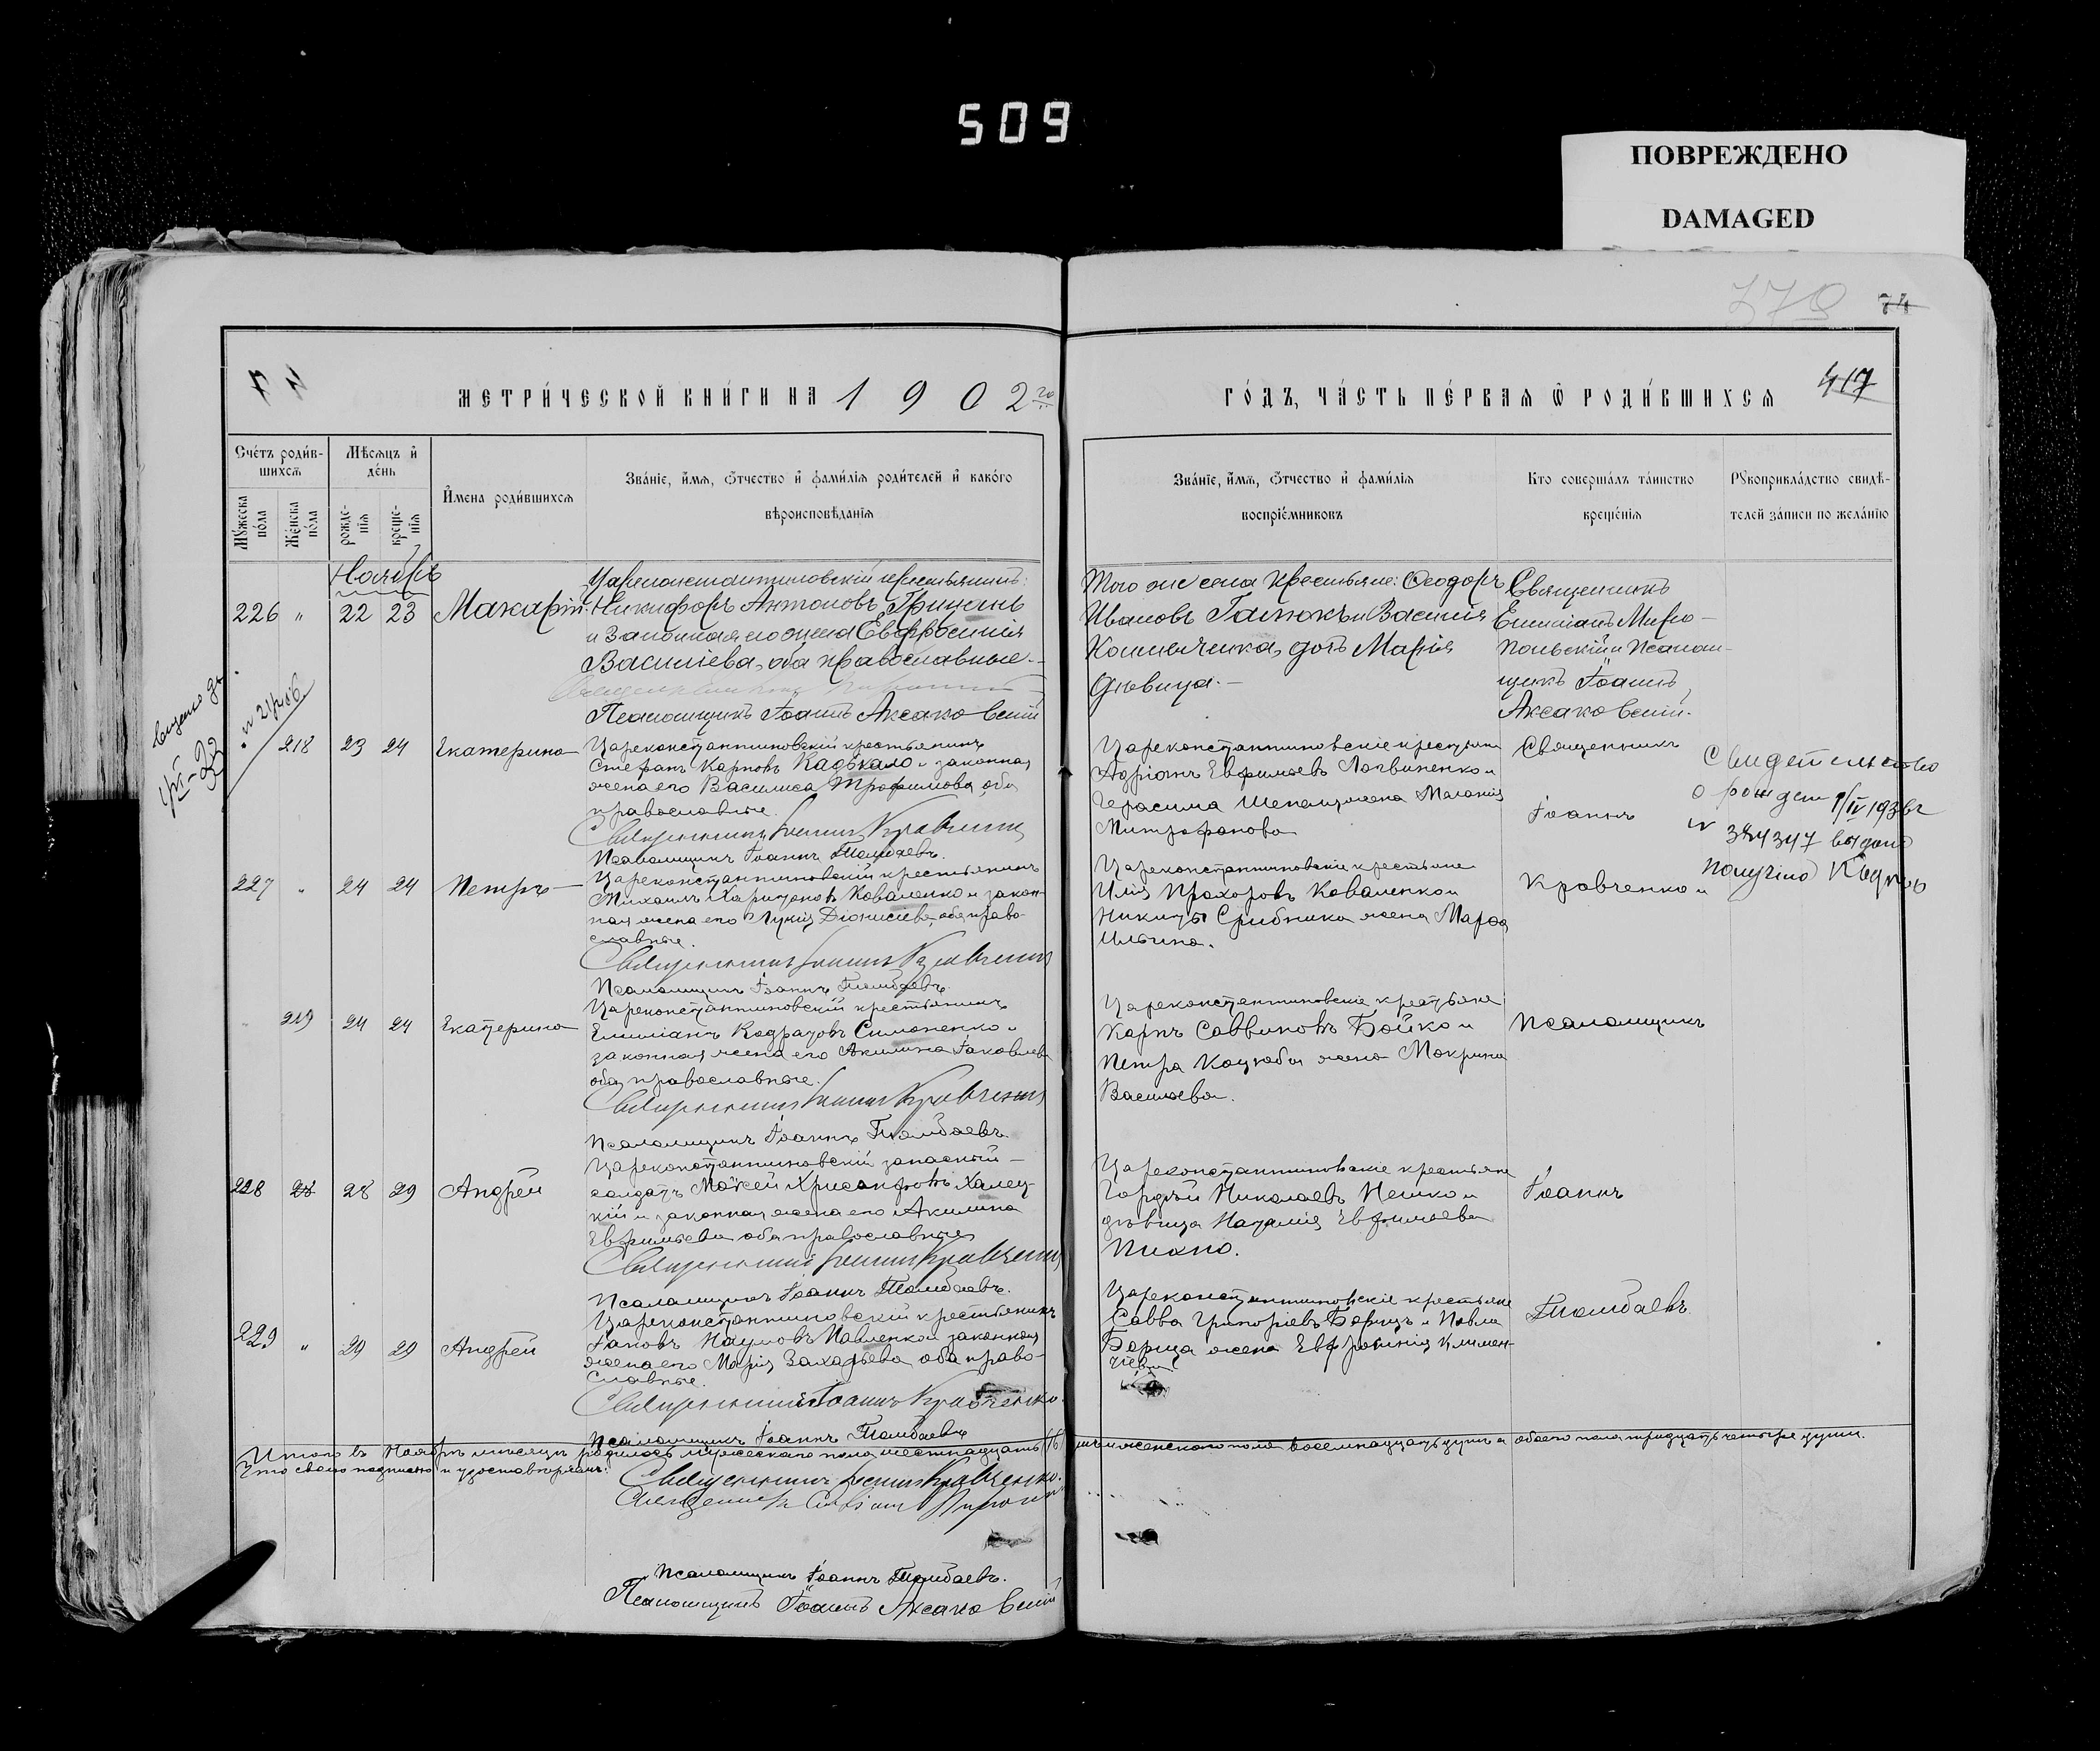 509
ПОВРЕЖДЕНО
DAMAGED
74
417
МЕТРИ́ЧЕСКОЙ КНИ́ГИ НА 1902 го
ГО́ДЪ, ЧА́СТЬ ПЕ́РВАЯ Ѿ РОДИ́ВШИХСЯ
Сче́тъ роди́в-
шихсѧ
Мꙋ́жеска по́ла
Же́нска по́ла
Мѣ́сѧцъ и҆ де́нь
рожде-нїѧ
креще-нїѧ
И҆мена роди́вшихсѧ
Зва́нїе, и҆́мѧ, ѻ҆́тчество и҆ фами́лїѧ роди́телей и҆ како́го
вѣроисповѣ́данїѧ
Зва́нїе, и҆́мѧ, ѻ҆́тчество и҆ фами́лїѧ
воспрїе́мниковъ
Кто соверша́лъ та́инство
креще́нїѧ
Рꙋкоприкла́дство свидѣ́-
телей за́писи по жела́нїю
Ноябрь
226 " 22 23 Макарій
Цареконстантиновскій крестьянинъ:
Никифоръ Антоновъ Грицань
и законная его жена Евфросинія
Василіева, оба православные.
Псаломщикъ Іоаннъ Аксаковскій
Того же села крестьяне: Ѳеодоръ
Ивановъ Галюкъ и Василія
дочь Марія
дѣвица.
Священникъ
Емиліанъ Миро-
польскій и Псалом-
щикъ Іоаннъ
Аксаковскій.
218 23 24 Екатерина
Цареконстантиновскій крестьянинъ
Стефанъ Карповъ Кадькало и законная
жена его Василиса Трофимова, оба
православные.
Священникъ Іоаннъ Кравченко
Псаломщикъ Іоаннъ Толмбаевъ.
Цареконстантиновскіе крестьяне
Адріанъ Евфимьевъ Логвиненко и
Герасима жена Маланія
Митрофанова
Священникъ
Іоаннъ
Свидетельство
о рожден
384347 выдано
получил
227 " 24 24 Петръ
Цареконстантиновскій крестьянинъ
Михаилъ Харитоновъ Коваленко и закон-
ная жена его Лукія Діонисіева, оба право-
славные.
Священникъ Іоаннъ Кравченко
Псаломщикъ Іоаннъ Толмбаевъ.
Цареконстантиновскіе крестьяне
Илія Прохоровъ Коваленко и
Никиты Срибника жена Марѳа
Ильина.
Кравченко и
219 24 24 Екатерина
Цареконстантиновскій крестьянинъ
Емиліанъ Кодратовъ Симоненко и
законная жена его Акилина Іаковлева
оба православные.
Священникъ Іоаннъ Кравченко
Псаломщикъ Іоаннъ Толмбаевъ.
Цареконстантиновскіе крестьяне
Карпъ Саввиновъ Бойко и
Петра Коцюбы жена Макрина
Васильева.
Псаломщикъ
228 28 29 Андрей
Цареконстантиновскій запасный
солдатъ Моѵсей Хрисанфовъ Халец-
кій и законная жена его Акилина
Евфимьева оба православные
Священникъ Іоаннъ Кравченко
Псаломщикъ Іоаннъ Толмбаевъ.
Цареконстантиновскіе крестьяне
Гордѣй Николаевъ Нешко и
дѣвица Наталія Евфимьева
Пихно.
Іоаннъ
229 " 29 29 Андрей
Цареконстантиновскій крестьянинъ
Іаковъ Наумовъ Павленко и законная
жена его Марія Захарьева оба право-
славные.
Священникъ Іоаннъ Кравченко.
Псаломщикъ Іоаннъ Толмбаевъ
Цареконстантиновскіе крестьяне
Савва Григоріевъ Борецъ и Павла
Борца жена Евфросинія Климен-
тіева.
Толмбаевъ.
Итого въ Ноябрѣ мѣсяцѣ родилось мужескаго пола шестнадцать (16) и женскаго пола восемнадцать душъ а обоего пола тридцать четыре души.
Что своею подписью и удостовѣряемъ:
Священникъ Іоаннъ Кравченко.
Псаломщикъ Іоаннъ Толмбаевъ.
Псаломщикъ Іоаннъ Аксаковскій